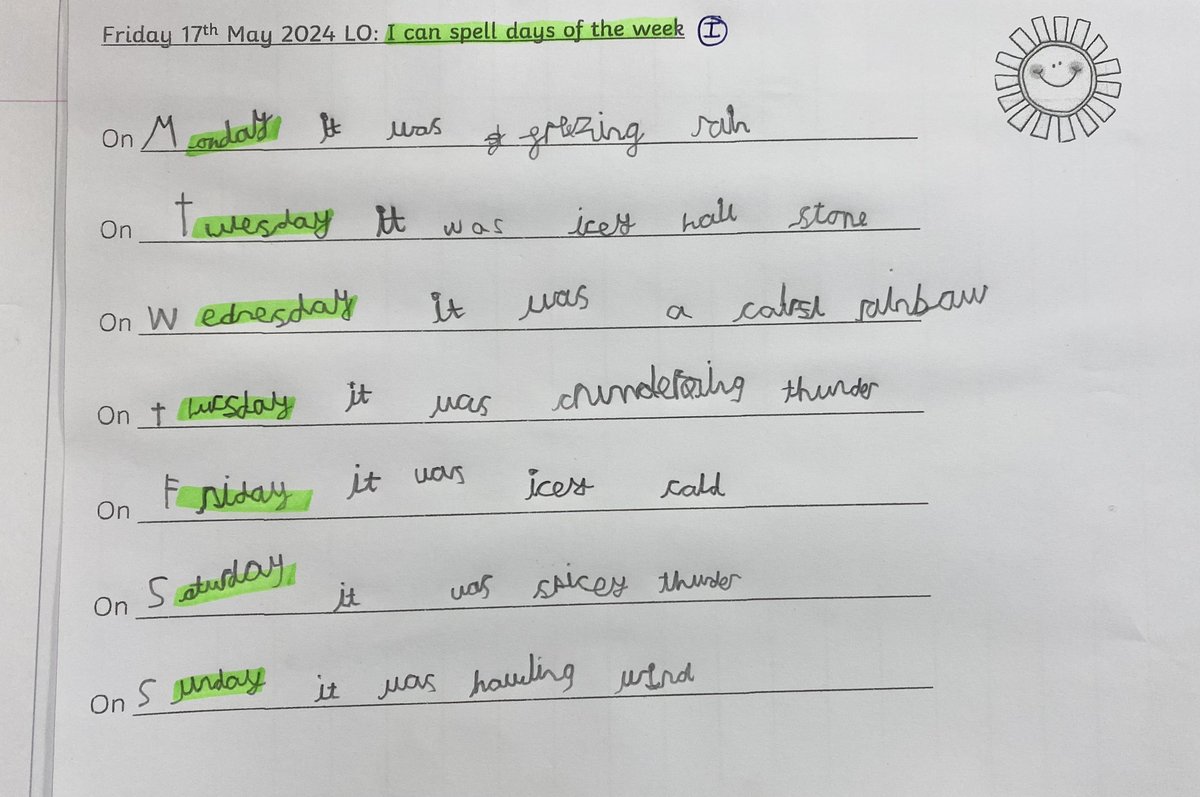 Friday 17th May 2024 LO: I can spell days of the week I
On Monday it was freezing rain
On tuesday it was icey hail stone
On Wednesday it was a rainbaw
On tuesday it was thunder
On Friday it was icey cald
On Saturday it was spicey thunder
On Sunday it was hauling wind